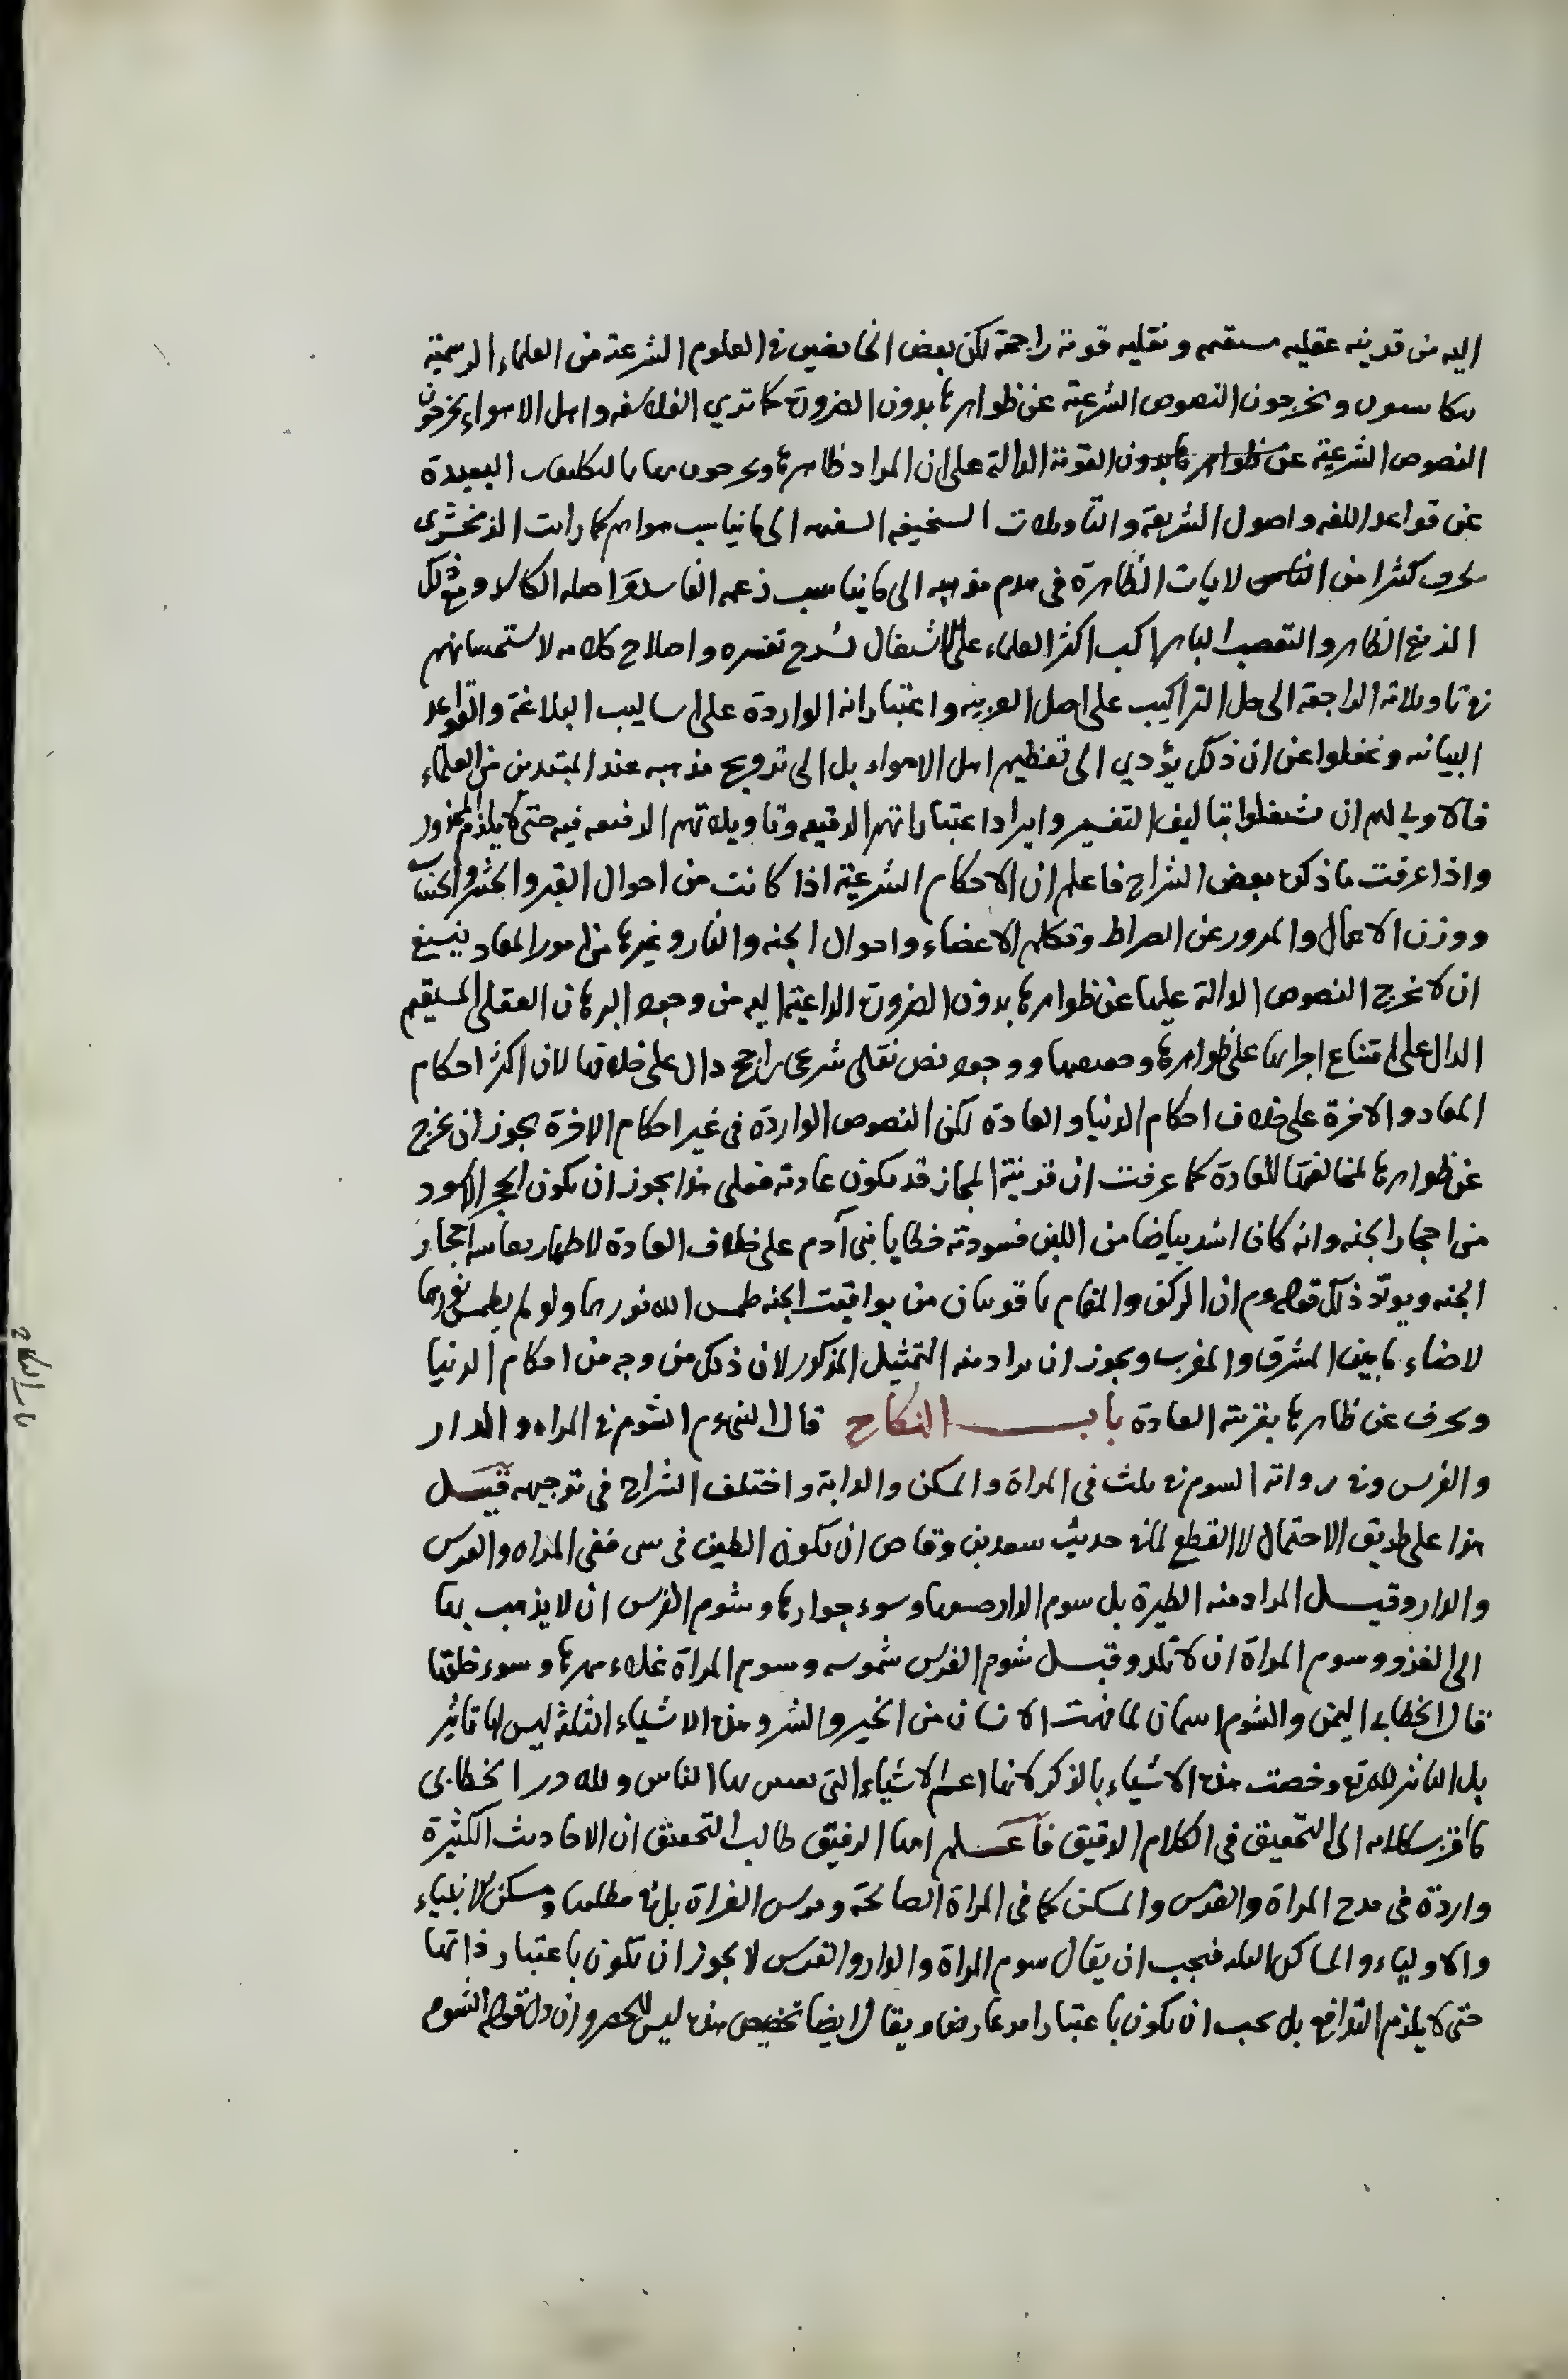 اليه من قرينه عقليه مستقيمه و نقليه قوية راجحة لكن بعض الخائضين في العلوم الشرعية من العلماء الرسمية
ويخرجون النصوص الشرعية عن ظواهرها بدون الضرورة كما تري الفلاسفه واهل الاهواء يخرجون
النصوص الشرعية عن ظواهرها بدون القرينة الدالة على ان المراد ظاهرها البعيدة
عن قواعد اللغه واصول الشريعة والتأويلات السخيفه السقيمه الى ما يناسب هواهم كما رايت الزمخشرى
يحرف كثيرا من الايات الظاهرة في هدم مذهبه الى ما يناسب زعمه الفاسد واصله الكاسد ومع ذلك
الزيغ الظاهر والتعصب الباهر اكب اكثر العلماء على الاشتغال بشرح تفسيره واصلاح كلامه لاستحسانهم
في تاويلاته الراجعة الى حل التراكيب على اصل العربيه واعتباراته الواردة على اساليب البلاغة والقواعد
البيانيه وغفلوا عن ان ذلك يؤدي الى تعظيم اهل الاهواء بل الى ترويج مذهبه عند المبتدئين من العلماء
فالاولى لهم ان يشتغلوا بتاليف التفسير وايراد اعتباراتهم الدقيقه وتاويلاتهم الرفيعه فيه حتى لا يلزم المحذور
واذا عرفت ما ذكره بعض الشراح فاعلم ان الاحكام الشرعية اذا كانت من احوال القبر والحشر والحساب
ووزن الاعمال والمرور عن الصراط وتكلم الاعضاء واحوال الجنه والنار وغيرها من امور المعاد ينبغي
ان لا نخرج النصوص الدالة عليها عن ظواهرها بدون الضرورة الداعية اليه من وجود البرهان العقلى المستقيم
الدال على امتناع اجرائها على ظواهرها وحقيقتها ووجود نص نقلى شرعى راجح دال على خلافها لان اكثر احكام
المعاد والاخرة على خلاف احكام الدنيا والعادة لكن النصوص الواردة في غير احكام الاخرة يجوز ان نخرج
عن ظواهرها لمخالفتها للعادة كما عرفت ان قرينة المجاز قد يكون عادته فعلى هذا يجوز ان يكون الحجر الاسود
من احجار الجنه وانه كان اشد بياضا من اللبن فسودته خطايا بنى آدم على خلاف العادة لاظهار احجار
الجنه ويويد ذلك قوله عم ان الركن والمقام ياقوتتان من يواقيت الجنه طمس الله نورهما ولو لم يطمس نورهما
لاضاء ما بين المشرق والمغرب ويجوز ان يراد منه التمثيل المذكور لان ذلك من وجه من احكام الدنيا
ويحرف عن ظاهرها بقرينة العادة باب النكاح قال النبى عم الشوم في المراه والدار
والفرس وفي رواية الشوم في ثلث في المراة والمسكن والدابة واختلف الشراح في توجيهه قيل
هذا على طريق الاحتمال لا القطع لما في حديث سعد بن وقاص ان تكون الطيرة في شى ففى المراه والفرس
والدار وقيل المراد منه الطيرة بل شوم الدار ضيقها وسوء جوارها وشوم الفرس ان لا يذهب بها
الى الغزو وشوم المراة ان لا تلد وقيل شوم الفرس شموسه وشوم المراة غلاء مهرها وسوء خلقها
قال الخطابى اليمن والشوم اسمان لما الانسان من الخير والشر وهذه الاشياء الثلثة ليس لها تاثير
بل التاثير لله تع وخصت هذه الاشياء بالذكر لانها اعم الاشياء التى بها الناس ولله در الخطابى
ما اقرب كلامه الى التحقيق في الكلام الدقيق فاعلم ايها الرفيق طالب التحقيق ان الاحاديث الكثيرة
واردة في مدح المراة والفرس والمسكن كما في المراة الصالحة وفرس الغزاة بل في مطلقها ومسكن الانبياء
والاولياء والمساكن فيجب ان يقال شوم المراة والدار والفرس لا يجوز ان تكون باعتبار ذاتها
حتى لا يلزم التدافع بل يجب ان يكون باعتبار امر عارض ويقال ايضا تخصيص هذه ليس للحصر وان دل قوله الشوم
باب النكاح